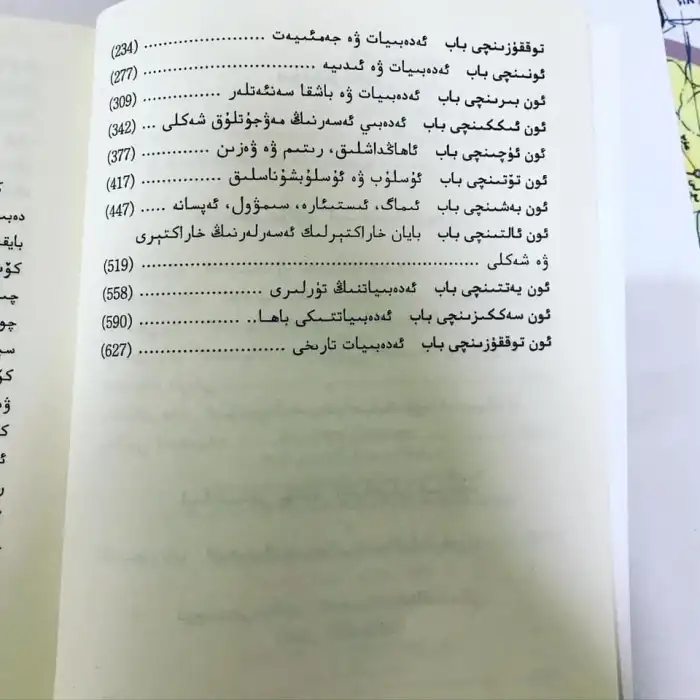 توققۇزىنچى باب ئەدەبىيات ۋە جەمئىيەت ........................ (234)
ئونىنچى باب ئەدەبىيات ۋە ئىدىيە ........................ (277)
ئون بىرىنچى باب ئەدەبىيات ۋە باشقا سەنئەتلەر ............... (309)
ئون ئىككىنچى باب ئەدەبىي ئەسەرنىڭ مەۋجۇتلۇق شەكلى ... (342)
ئون ئۈچىنچى باب ئاھاڭداشلىق، رىتىم ۋە ۋەزىن ............ (377)
ئون تۆتىنچى باب ئۇسلۇب ۋە ئۇسلۇبشۇناسلىق ............... (417)
ئون بەشىنچى باب ئىماگ، ئىستىئارە، سىمۋول، ئەپسانە ..... (447)
ئون ئالتىنچى باب بايان خاراكتېرلىك ئەسەرلەرنىڭ خاراكتېرى
ۋە شەكلى ........................................................ (519)
ئون يەتتىنچى باب ئەدەبىياتنىڭ تۈرلىرى ..................... (558)
ئون سەككىزىنچى باب ئەدەبىياتتىكى باھا.. .................. (590)
ئون توققۇزىنچى باب ئەدەبىيات تارىخى ........................ (627)